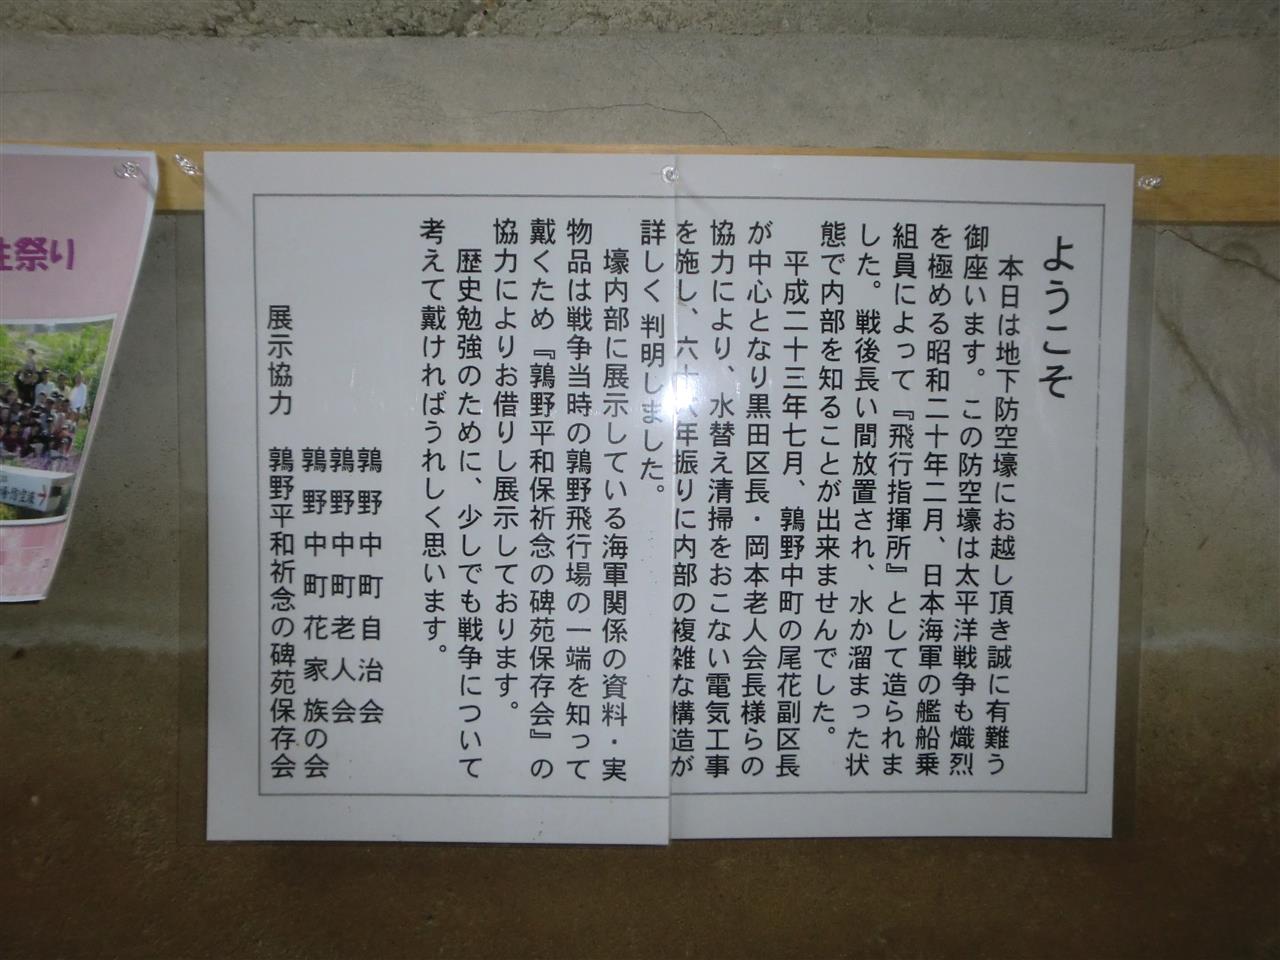 ようこそ
本日は地下防空壕にお越し頂き誠に有難う
御座います。この防空壕は太平洋戦争も熾烈
を極める昭和二十年二月、日本海軍の艦船乗
組員によって『飛行指揮所』として造られま
した。戦後長い間放置され、水か溜まった状
態で内部を知ることが出来ませんでした。
平成二十三年七月、鶉野中町の尾花副区長
が中心となり黒田区長・岡本老人会長様らの
協力により、水替え清掃をおこない電気工事
を施し、六十六年振りに内部の複雑な構造が
詳しく判明しました。
壕内部に展示している海軍関係の資料・実
物品は戦争当時の鶉野飛行場の一端を知って
戴くため『鶉野平和保祈念の碑苑保存会』の
協力によりお借りし展示しております。
歴史勉強のために、少しでも戦争について
考えて戴ければうれしく思います。
展示協力
鶉野中町自治会
鶉野中町老人会
鶉野中町花家族の会
鶉野平和祈念の碑苑保存会
祭り